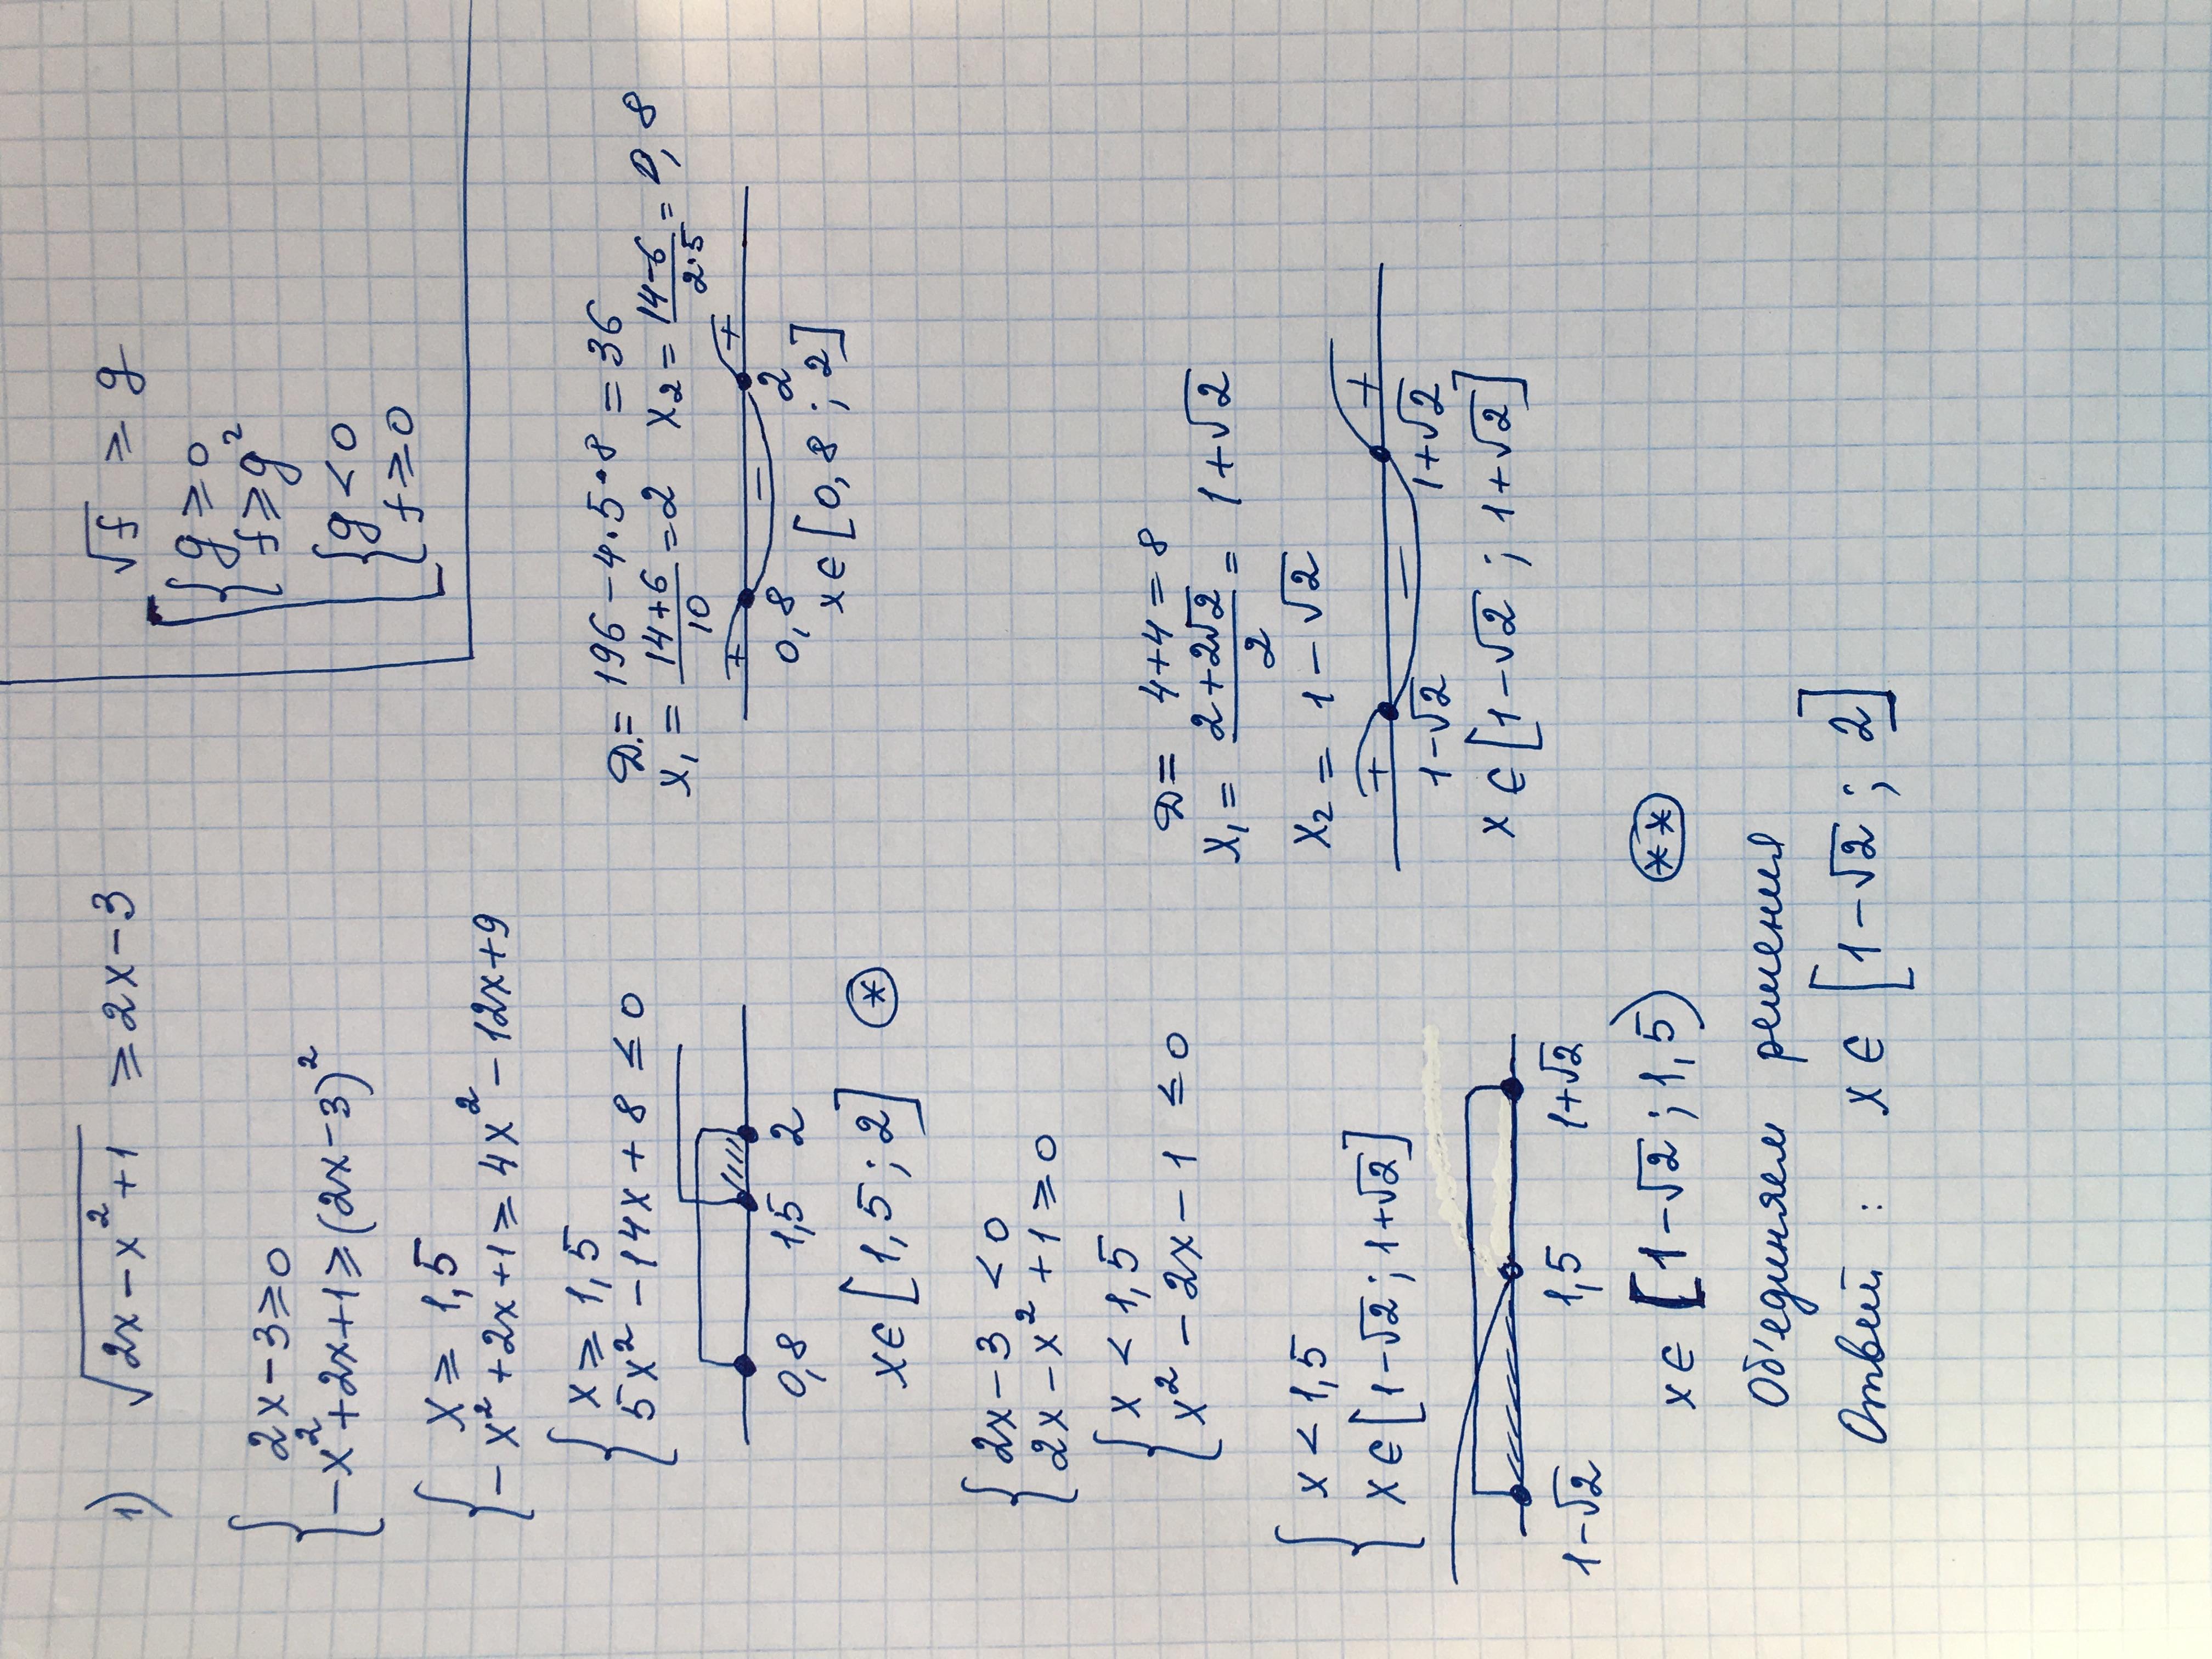 1) √(2x − x² + 1) ≥ 2x − 3
√f ≥ g
[ { g ≥ 0
f ≥ g²
{ g < 0
f ≥ 0
{ 2x − 3 ≥ 0
−x² + 2x + 1 ≥ (2x − 3)²
{ x ≥ 1,5
−x² + 2x + 1 ≥ 4x² − 12x + 9
{ x ≥ 1,5
5x² − 14x + 8 ≤ 0
0,8 1,5 2
x ∈ [1,5 ; 2] *
D = 196 − 4·5·8 = 36
x₁ = (14+6)/10 = 2 x₂ = (14−6)/(2·5) = 0,8
+ − +
0,8 2
x ∈ [0,8 ; 2]
{ 2x − 3 < 0
2x − x² + 1 ≥ 0
{ x < 1,5
x² − 2x − 1 ≤ 0
D = 4+4 = 8
x₁ = (2+2√2)/2 = 1+√2
x₂ = 1 − √2
+ − +
1−√2 1+√2
x ∈ [1−√2 ; 1+√2]
{ x < 1,5
x ∈ [1−√2 ; 1+√2]
1−√2 1,5 1+√2
x ∈ [1−√2 ; 1,5) **
Об'единяем решения
Ответ: x ∈ [1−√2 ; 2]